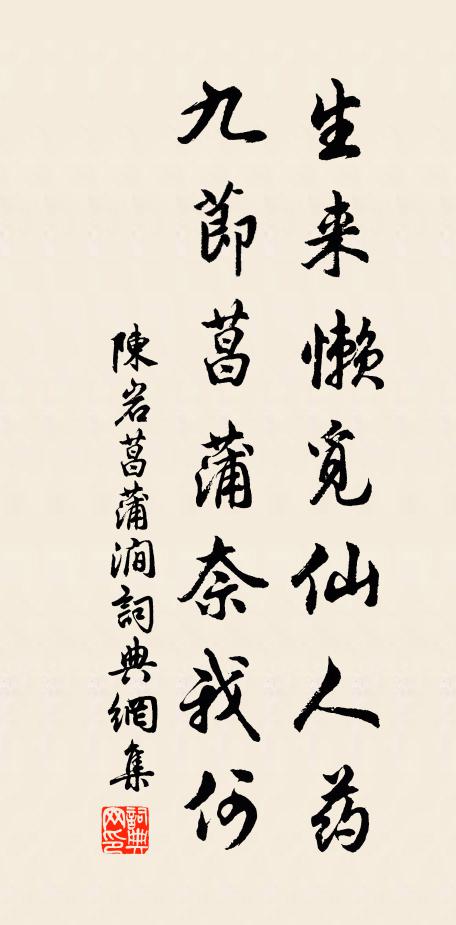 生来懒觅仙人药
九節菖蒲奈我何
陳岩菖蒲澗詞典網集
詞典网印